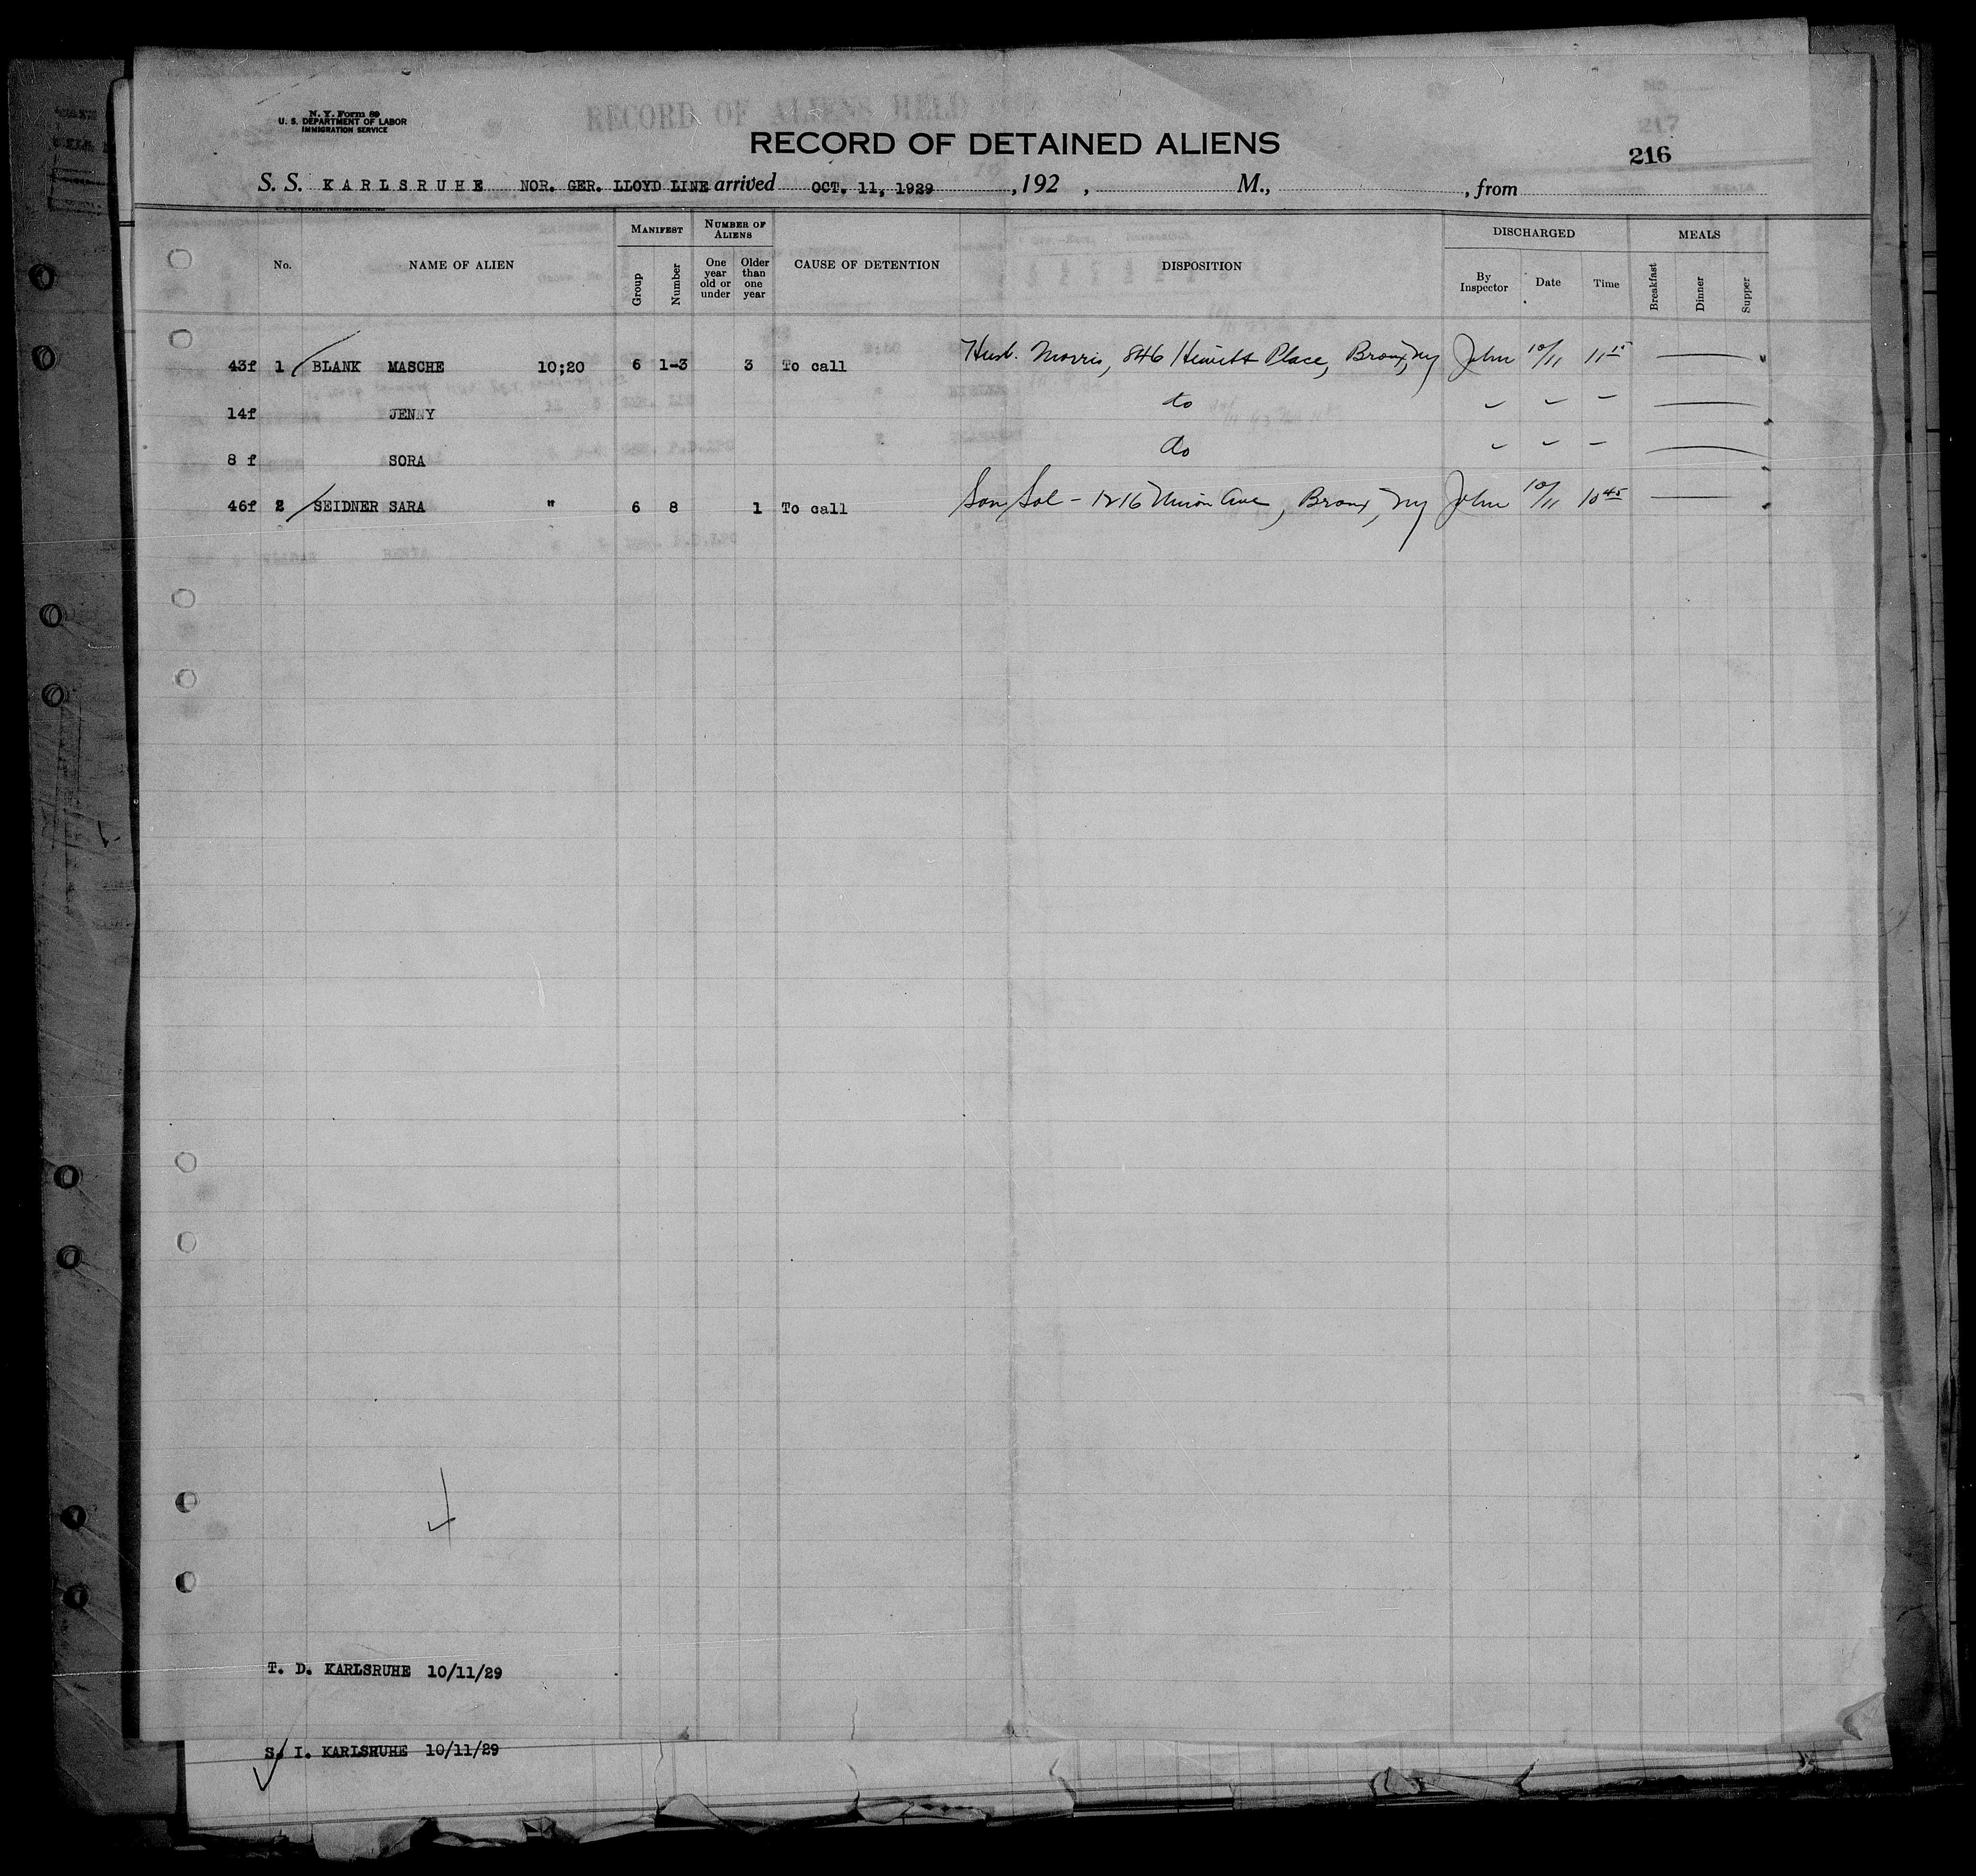 N. Y. Form 89
U. S. DEPARTMENT OF LABOR
IMMIGRATION SERVICE
RECORD OF ALIENS HELD
RECORD OF DETAINED ALIENS
217
216
S. S. KARLSRUHE NOR. GER. LLOYD LINE arrived OCT. 11, 1929, 192 , M., , from
No. NAME OF ALIEN MANIFEST Group Number NUMBER OF ALIENS One year old or under Older than one year CAUSE OF DETENTION DISPOSITION DISCHARGED By Inspector Date Time MEALS Breakfast Dinner Supper
43f 1 BLANK MASCHE 10;20 6 1-3 3 To call Husb. Morris, 846 Hewitt Place, Bronx, NY John 10/11 11 15
14f JENNY do
8 f SORA do
46f 2 SEIDNER SARA " 6 8 1 To call Son Sol - 1216 Union Ave, Bronx, NY John 10/11 10 45
T. D. KARLSRUHE 10/11/29
S. I. KARLSRUHE 10/11/29